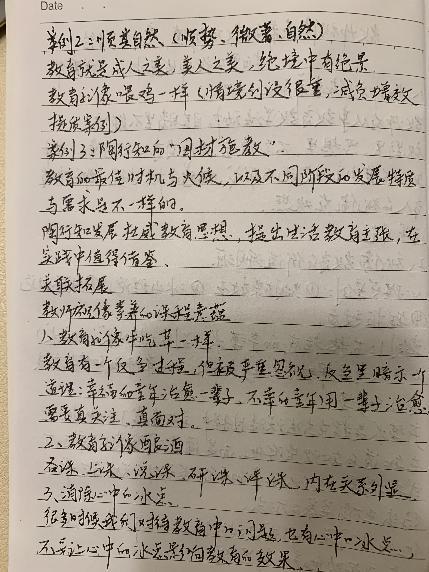 Date
案例2:顺其自然(顺势、微著、自然)
教育就是成人之美,美人之美,绝境中有绝景
教育就像喂鸡一样(情境创设很重,减负增效
提质案例)
案例3:陶行知的"因材施教"
教育的最佳时机与火候,以及不同阶段的发展特质
与需求是不一样的。
陶行知发展杜威教育思想,提出生活教育主张,在
实践中值得借鉴。
关联拓展
教师形象素养的课程意蕴
1、教育就像牛吃草一样.
教育有一个反刍过程,但被严重忽视,反刍里暗示一个
道理:幸福的童年治愈一辈子,不幸的童年用一辈子治愈.
需要真关注、真面对。
2、教育就像酿酒
备课、上课、说课、研课、评课,内在关系外显
3、消除心中的冰点.
很多时候我们对待教育中的问题,也有心中的冰点,
不要让心中的冰点影响教育的效果.